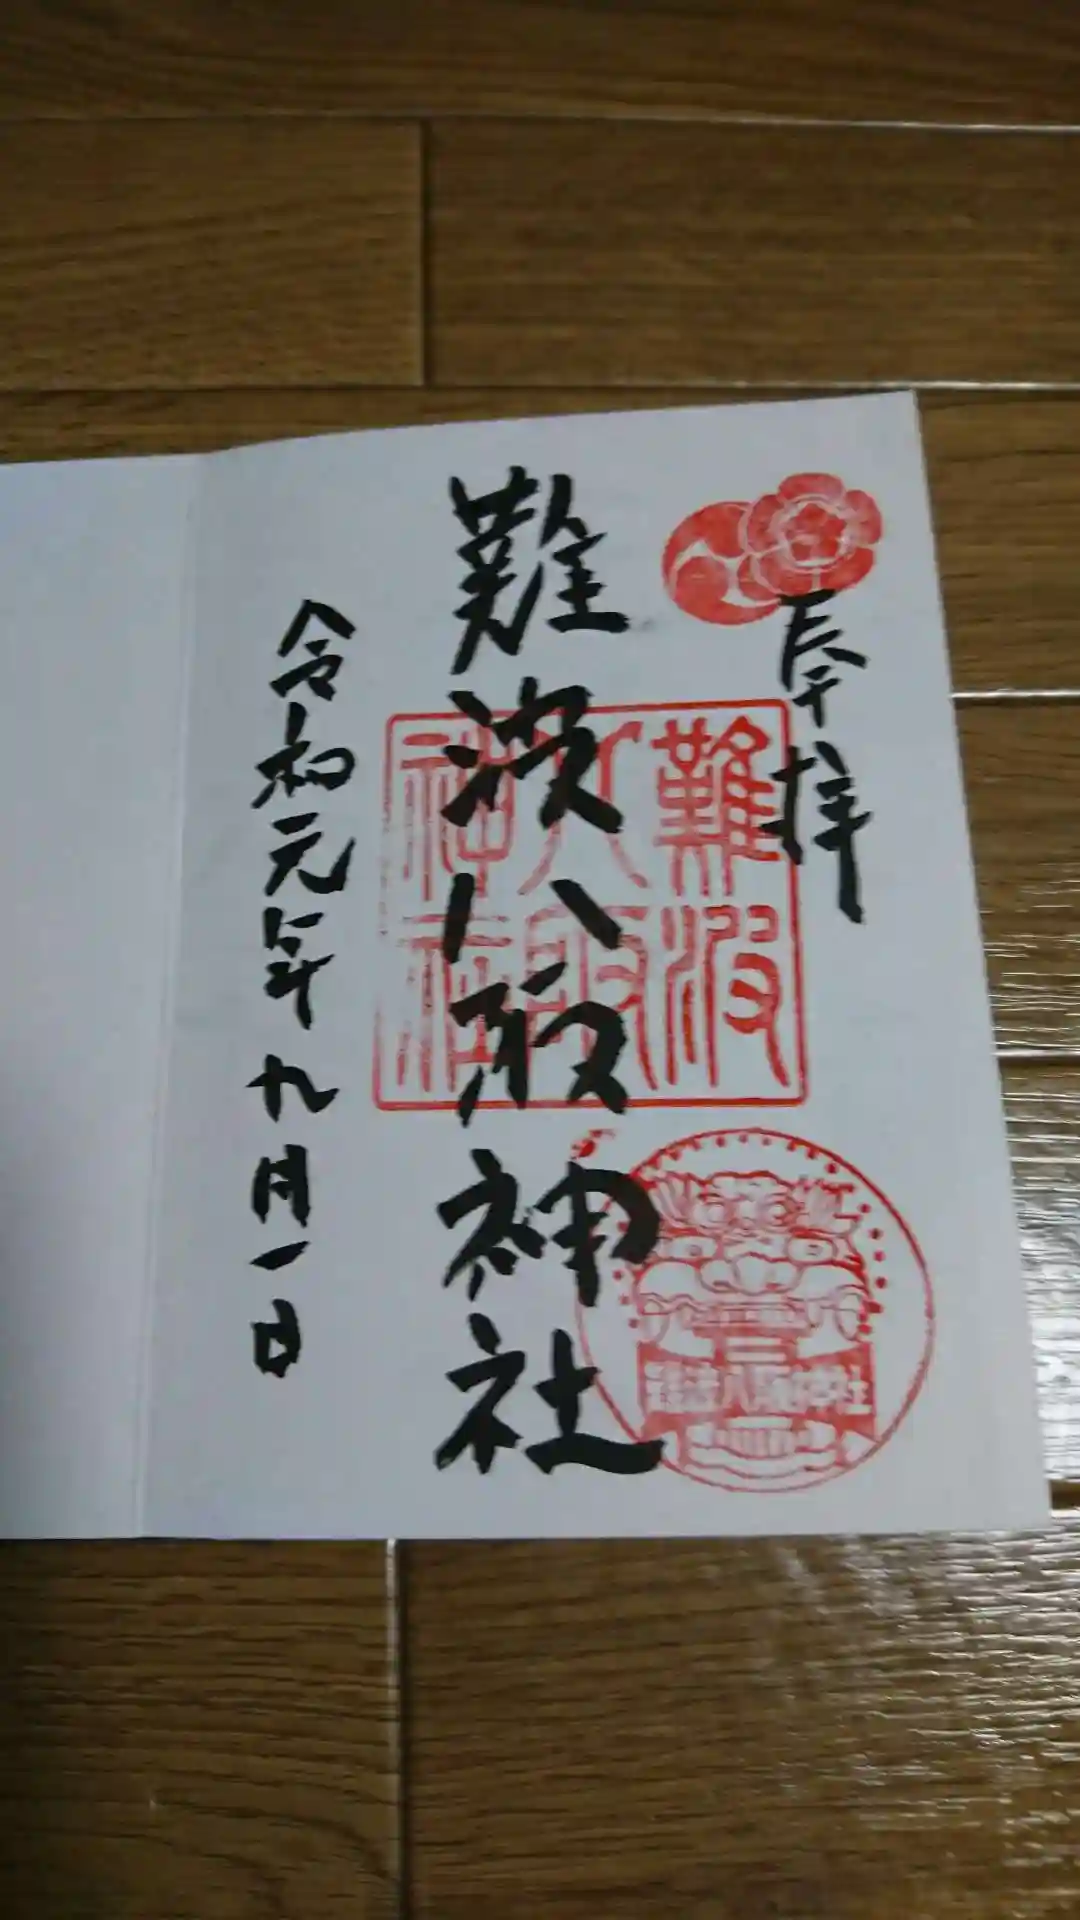 奉拝
難波八阪神社
令和元年九月一日
難波
八阪
神社
難波八阪神社